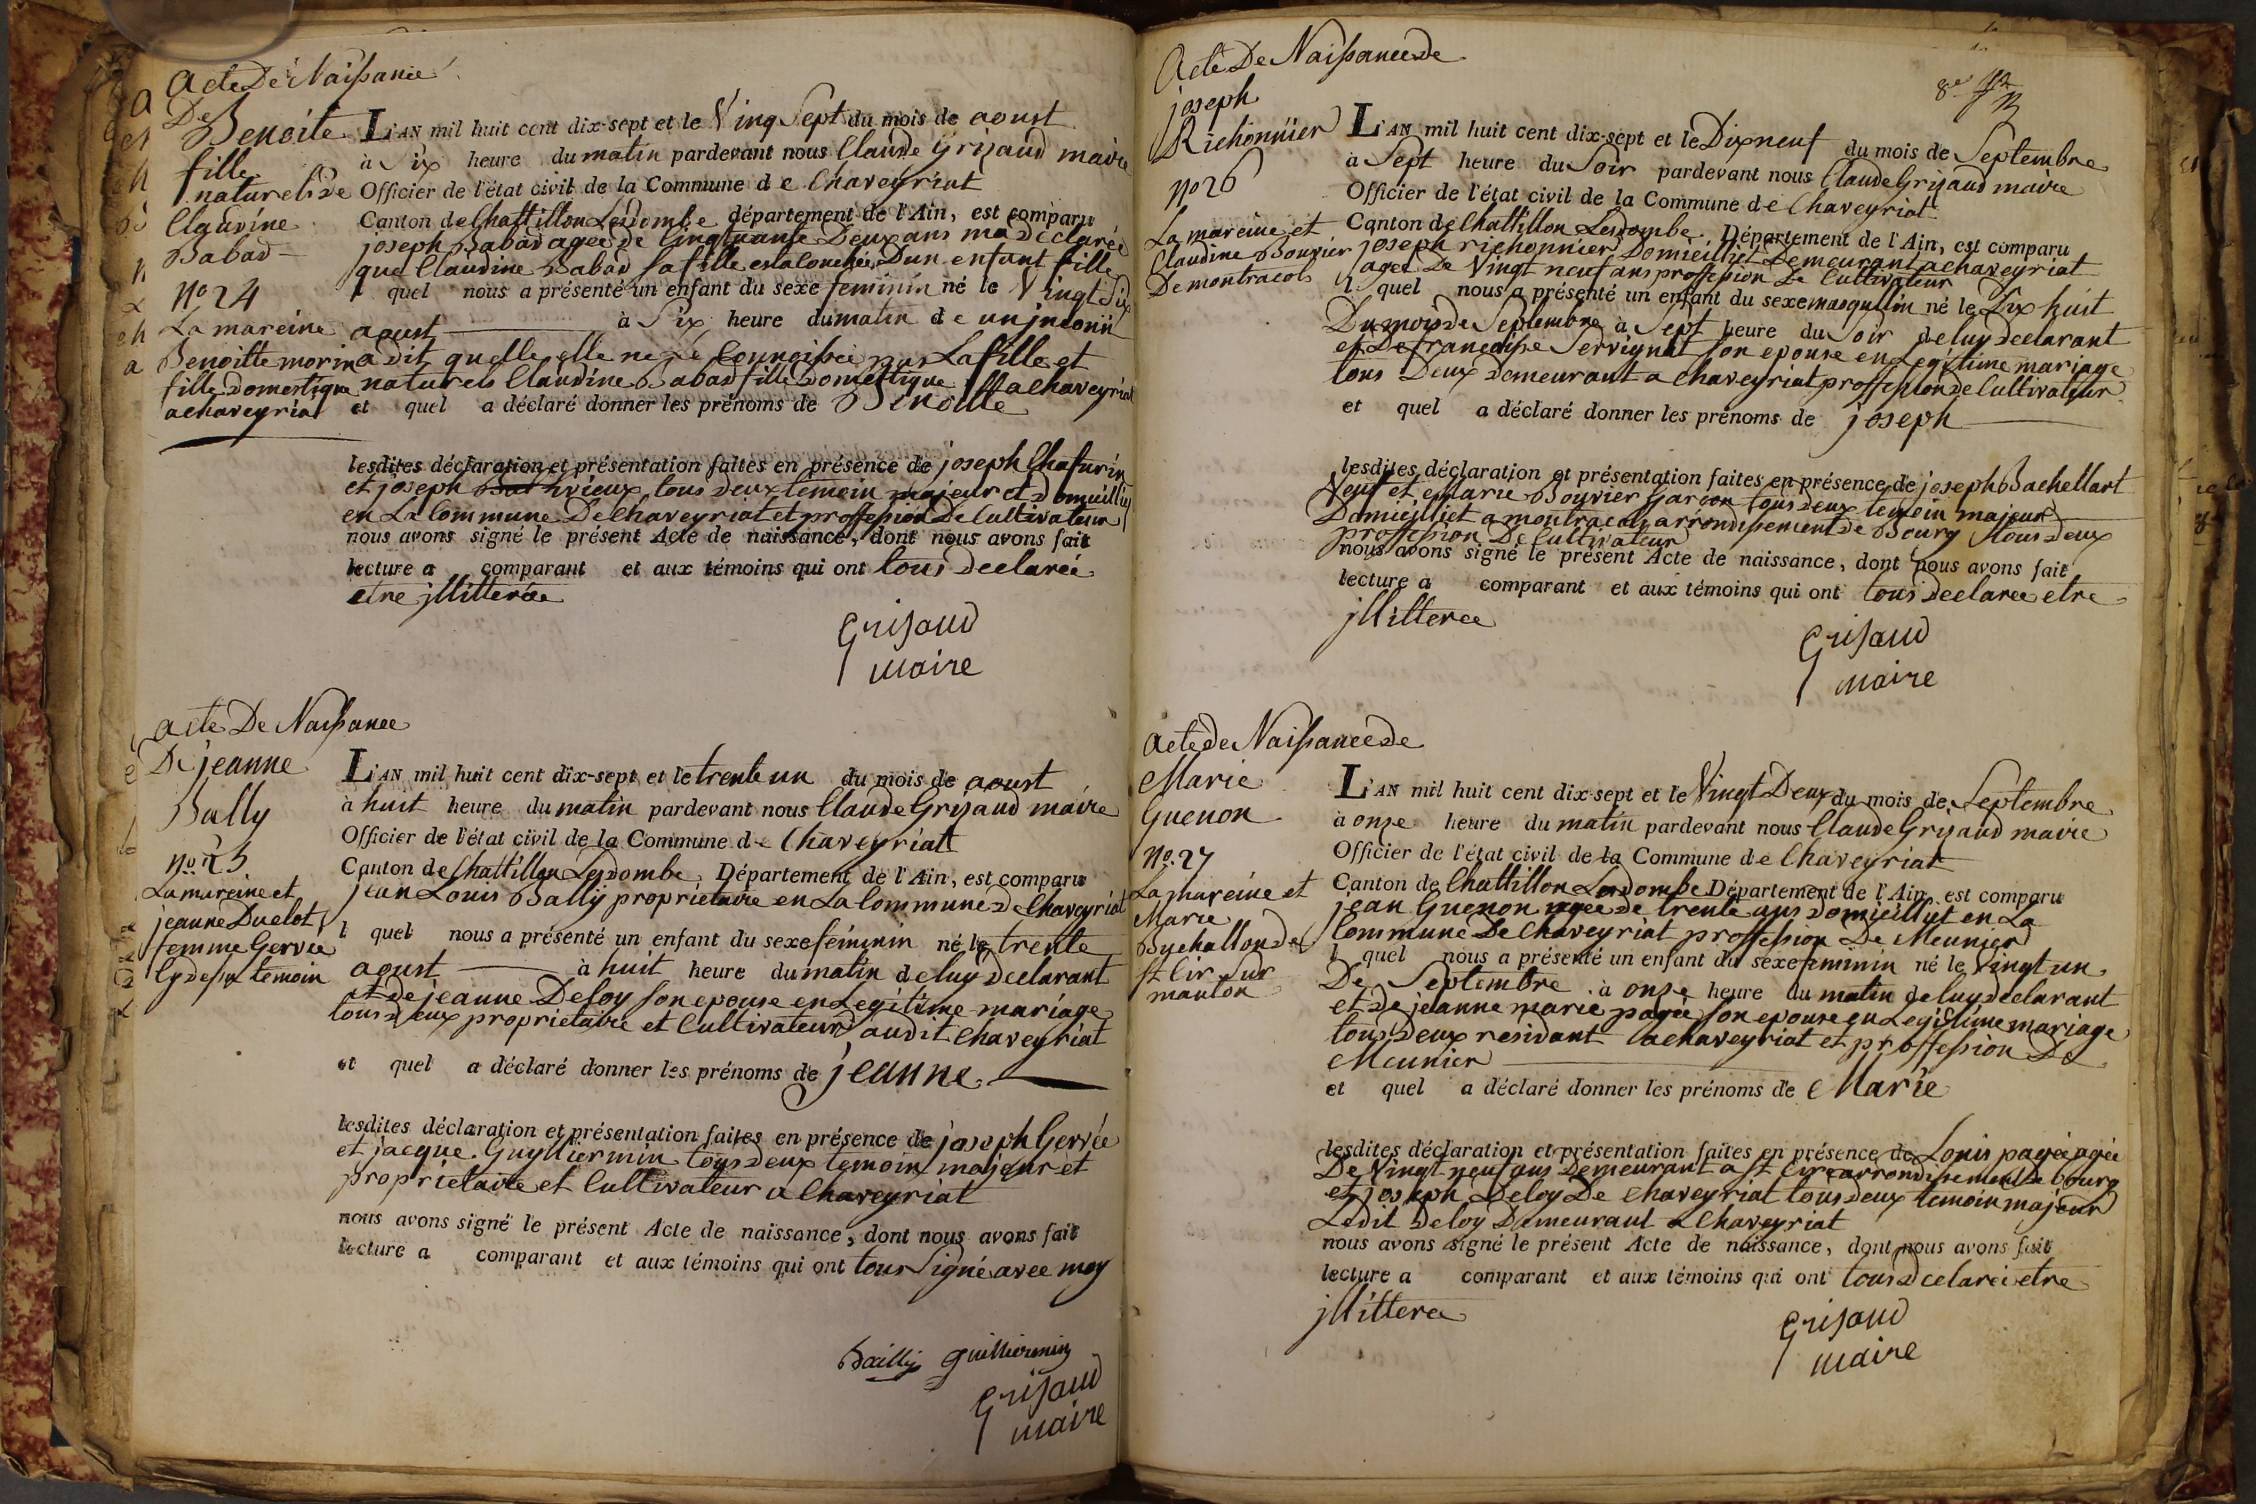 Acte De Naissance
De Benoite
fille
naturels de
Claudine
Babad
No 24
La mareine
Benoitte morin
fille domestique
a chaveyriat
L'AN mil huit cent dix-sept et le Ving Sept du mois de aoust
à Six heure du matin pardevant nous Claude Grisaud maire
Officier de l'état civil de la Commune de Chaveyriat
Canton de Chattillon Lesdombe département de l'Ain, est comparu
joseph Babad agee de Cinqtuante Deux ans ma déclarée
que Claudine Babad sa fille Dun enfant fille
l quel nous a présenté un enfant du sexe feminin né le Vingt Six
aoust à Six heure du matin de un jnconü
a dit quelle elle ne Connoissée pas La fille et
naturels Claudine Babad fille Domestique a chaveyriat
et quel a déclaré donner les prénoms de Benoitte
lesdites déclaration et présentation faites en présence de joseph Chaturin
et joseph vieux tous deux temoin majeur et domicilliez
en La Commune De Chaveyriat et proffession De Cultivateur
nous avons signé le présent Acte de naissance, dont nous avons fait
lecture a comparant et aux témoins qui ont tous Declarée
etre jllitterée
Grisaud
maire
acte De Naissance
De jeanne
Bally
no. 25
La mareine et
jeanne Duclot
femme Gervée
temoin
L'AN mil huit cent dix-sept et le trente un du mois de aoust
à huit heure du matin pardevant nous Claude Grisaud maire
Officier de l'état civil de la Commune de Chaveyriatt
Canton de Chattillon Lesdombe Département de l'Ain, est comparu
jean Louis Bally proprietaire en La Commune De Chaveyriat
l quel nous a présenté un enfant du sexe feminin né le trente
aoust à huit heure du matin de luy declarant
et de jeanne Deloy son epouse en Legitime mariage
tous deux proprietaire et Cultivateur audit chaveyriat
et quel a déclaré donner les prénoms de jeanne
lesdites déclaration et présentation faites en présence de joseph Gervée
et jacque Guylliermin tous deux temoin majeur et
proprietaire et Cultivateur a Chaveyriat
nous avons signé le présent Acte de naissance, dont nous avons fait
lecture a comparant et aux témoins qui ont tous Signé avec moy
Bailly guilliermin
Grisaud
maire
Acte De Naissance de
joseph
Richonnier
no 26
La mareine et
Claudine Bouvier
De montracol
8e
L'AN mil huit cent dix-sept et le Dix neuf du mois de Septembre
à Sept heure du Soir pardevant nous Claude Grisaud maire
Officier de l'état civil de la Commune de Chaveyriat
Canton de Chattillon Lesdombe Département de l'Ain, est comparu
joseph richonnier Domicilliet Demeurant a chaveyriat
agee De Vingt neuf ans proffession De Cultivateur
l quel nous a présenté un enfant du sexe masqullin né le Dix huit
Du mois de Septembre à Sept heure du Soir de luy declarant
et De francoise Servignat son epouse en Legitime mariage
tous Deux demeurant a chaveyriat proffession de Cultivateur
et quel a déclaré donner les prénoms de joseph
lesdites déclaration et présentation faites en présence de joseph Bachellart
Veuf et Bouvier garcon tous deux temoin majeur
Domicilliet a montracol arrondissement de Bourg tous deux
proffession De Cultivateur
nous avons signé le présent Acte de naissance, dont nous avons fait
lecture a comparant et aux témoins qui ont tous Declaree etre
jlliteree
Grisaud
maire
Acte de Naissance de
Marie
Guenon
No. 27
La mareine et
Marie
Buchallon de
st Cir Sur
manton
L'AN mil huit cent dix-sept et le Vingt Deux du mois de Septembre
à onze heure du matin pardevant nous Claude Grisaud maire
Officier de l'état civil de la Commune de Chaveyriat
Canton de Chattillon Lesdombe Département de l'Ain, est comparu
jean Guenon agee de trente ans domicilliet en La
Commune De Chaveyriat proffession De Meunier
l quel nous a présenté un enfant du sexe feminin né le Vingt un
De Septembre à onze heure du matin de luy declarant
et de jeanne marie pagée son epouse en Legitime mariage
tous deux residant a chaveyriat et proffession De
Meunier
et quel a déclaré donner les prénoms de Marie
lesdites déclaration et présentation faites en présence de Louis pagée agée
De Vingt neuf ans Demeurant a st Cire arrondisement de bourg
et joseph Deloy De Chaveyriat tous deux temoin majeur
Ledit Deloy Demeurant a Chaveyriat
nous avons signé le présent Acte de naissance, dont nous avons fait
lecture a comparant et aux témoins qui ont tous declarée etre
jllitteree
Grisaud
maire